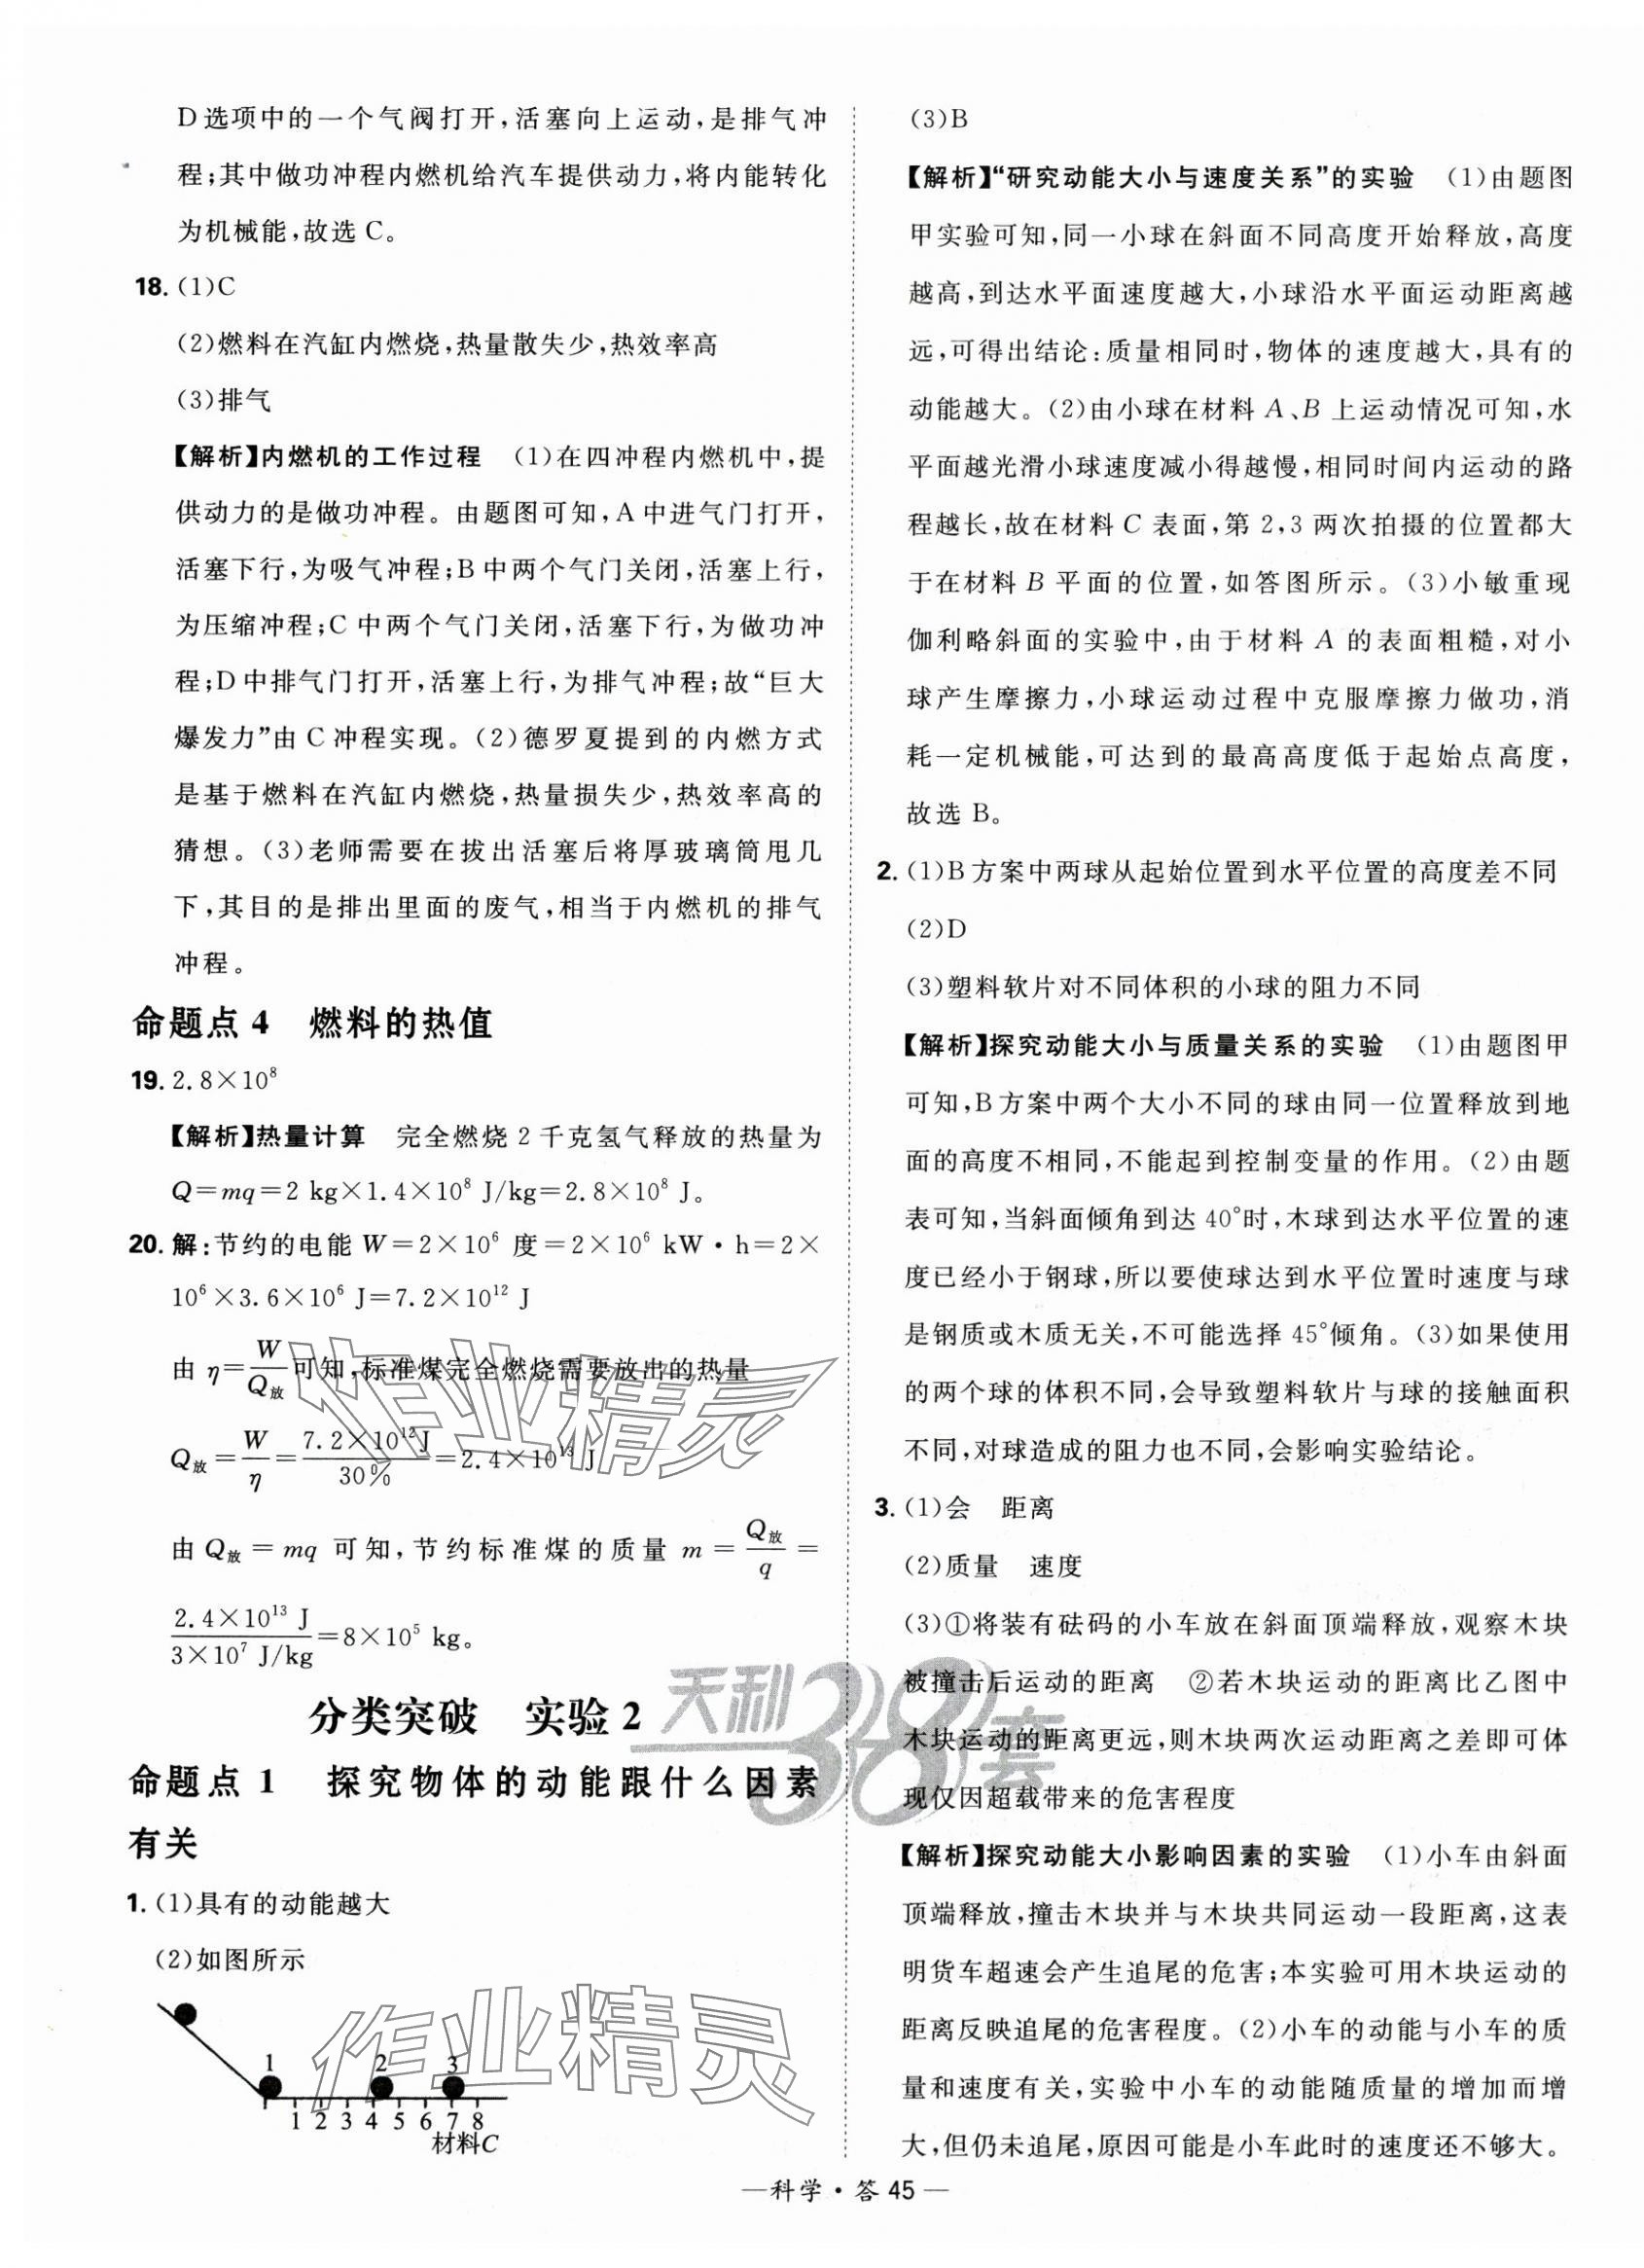 D选项中的一个气阀打开,活塞向上运动,是排气冲
程;其中做功冲程内燃机给汽车提供动力,将内能转化
为机械能,故选C。
18. (1)C
(2)燃料在汽缸内燃烧,热量散失少,热效率高
(3)排气
【解析】内燃机的工作过程 (1)在四冲程内燃机中,提
供动力的是做功冲程。由题图可知,A中进气门打开,
活塞下行,为吸气冲程;B中两个气门关闭,活塞上行,
为压缩冲程;C中两个气门关闭,活塞下行,为做功冲
程;D中排气门打开,活塞上行,为排气冲程;故“巨大
爆发力”由C冲程实现。(2)德罗夏提到的内燃方式
是基于燃料在汽缸内燃烧,热量损失少,热效率高的
猜想。(3)老师需要在拔出活塞后将厚玻璃筒甩几
下,其目的是排出里面的废气,相当于内燃机的排气
冲程。
命题点4 燃料的热值
19. 2.8×10⁸
【解析】热量计算 完全燃烧2千克氢气释放的热量为
Q=mq=2 kg×1.4×10⁸ J/kg=2.8×10⁸ J。
20. 解:节约的电能W=2×10⁶ 度=2×10⁶ kW·h=2×
10⁶×3.6×10⁶ J=7.2×10¹² J
由 η=W/Q放 可知,标准煤完全燃烧需要放出的热量
Q放=W/η=7.2×10¹² J/30%=2.4×10¹³ J
由 Q放=mq 可知,节约标准煤的质量 m=Q放/q=
2.4×10¹³ J/3×10⁷ J/kg=8×10⁵ kg。
分类突破 实验2
命题点1 探究物体的动能跟什么因素
有关
1. (1)具有的动能越大
(2)如图所示
1 2 3
1 2 3 4 5 6 7 8
材料C
(3)B
【解析】“研究动能大小与速度关系”的实验 (1)由题图
甲实验可知,同一小球在斜面不同高度开始释放,高度
越高,到达水平面速度越大,小球沿水平面运动距离越
远,可得出结论:质量相同时,物体的速度越大,具有的
动能越大。(2)由小球在材料A、B上运动情况可知,水
平面越光滑小球速度减小得越慢,相同时间内运动的路
程越长,故在材料C表面,第2,3两次拍摄的位置都大
于在材料B平面的位置,如答图所示。(3)小敏重现
伽利略斜面的实验中,由于材料A的表面粗糙,对小
球产生摩擦力,小球运动过程中克服摩擦力做功,消
耗一定机械能,可达到的最高高度低于起始点高度,
故选B。
2. (1)B方案中两球从起始位置到水平位置的高度差不同
(2)D
(3)塑料软片对不同体积的小球的阻力不同
【解析】探究动能大小与质量关系的实验 (1)由题图甲
可知,B方案中两个大小不同的球由同一位置释放到地
面的高度不相同,不能起到控制变量的作用。(2)由题
表可知,当斜面倾角到达40°时,木球到达水平位置的速
度已经小于钢球,所以要使球达到水平位置时速度与球
是钢质或木质无关,不可能选择45°倾角。(3)如果使用
的两个球的体积不同,会导致塑料软片与球的接触面积
不同,对球造成的阻力也不同,会影响实验结论。
3. (1)会 距离
(2)质量 速度
(3)①将装有砝码的小车放在斜面顶端释放,观察木块
被撞击后运动的距离 ②若木块运动的距离比乙图中
木块运动的距离更远,则木块两次运动距离之差即可体
现仅因超载带来的危害程度
【解析】探究动能大小影响因素的实验 (1)小车由斜面
顶端释放,撞击木块并与木块共同运动一段距离,这表
明货车超速会产生追尾的危害;本实验可用木块运动的
距离反映追尾的危害程度。(2)小车的动能与小车的质
量和速度有关,实验中小车的动能随质量的增加而增
大,但仍未追尾,原因可能是小车此时的速度还不够大。
作业精灵
天利38套
作业精灵
—科学·答45—